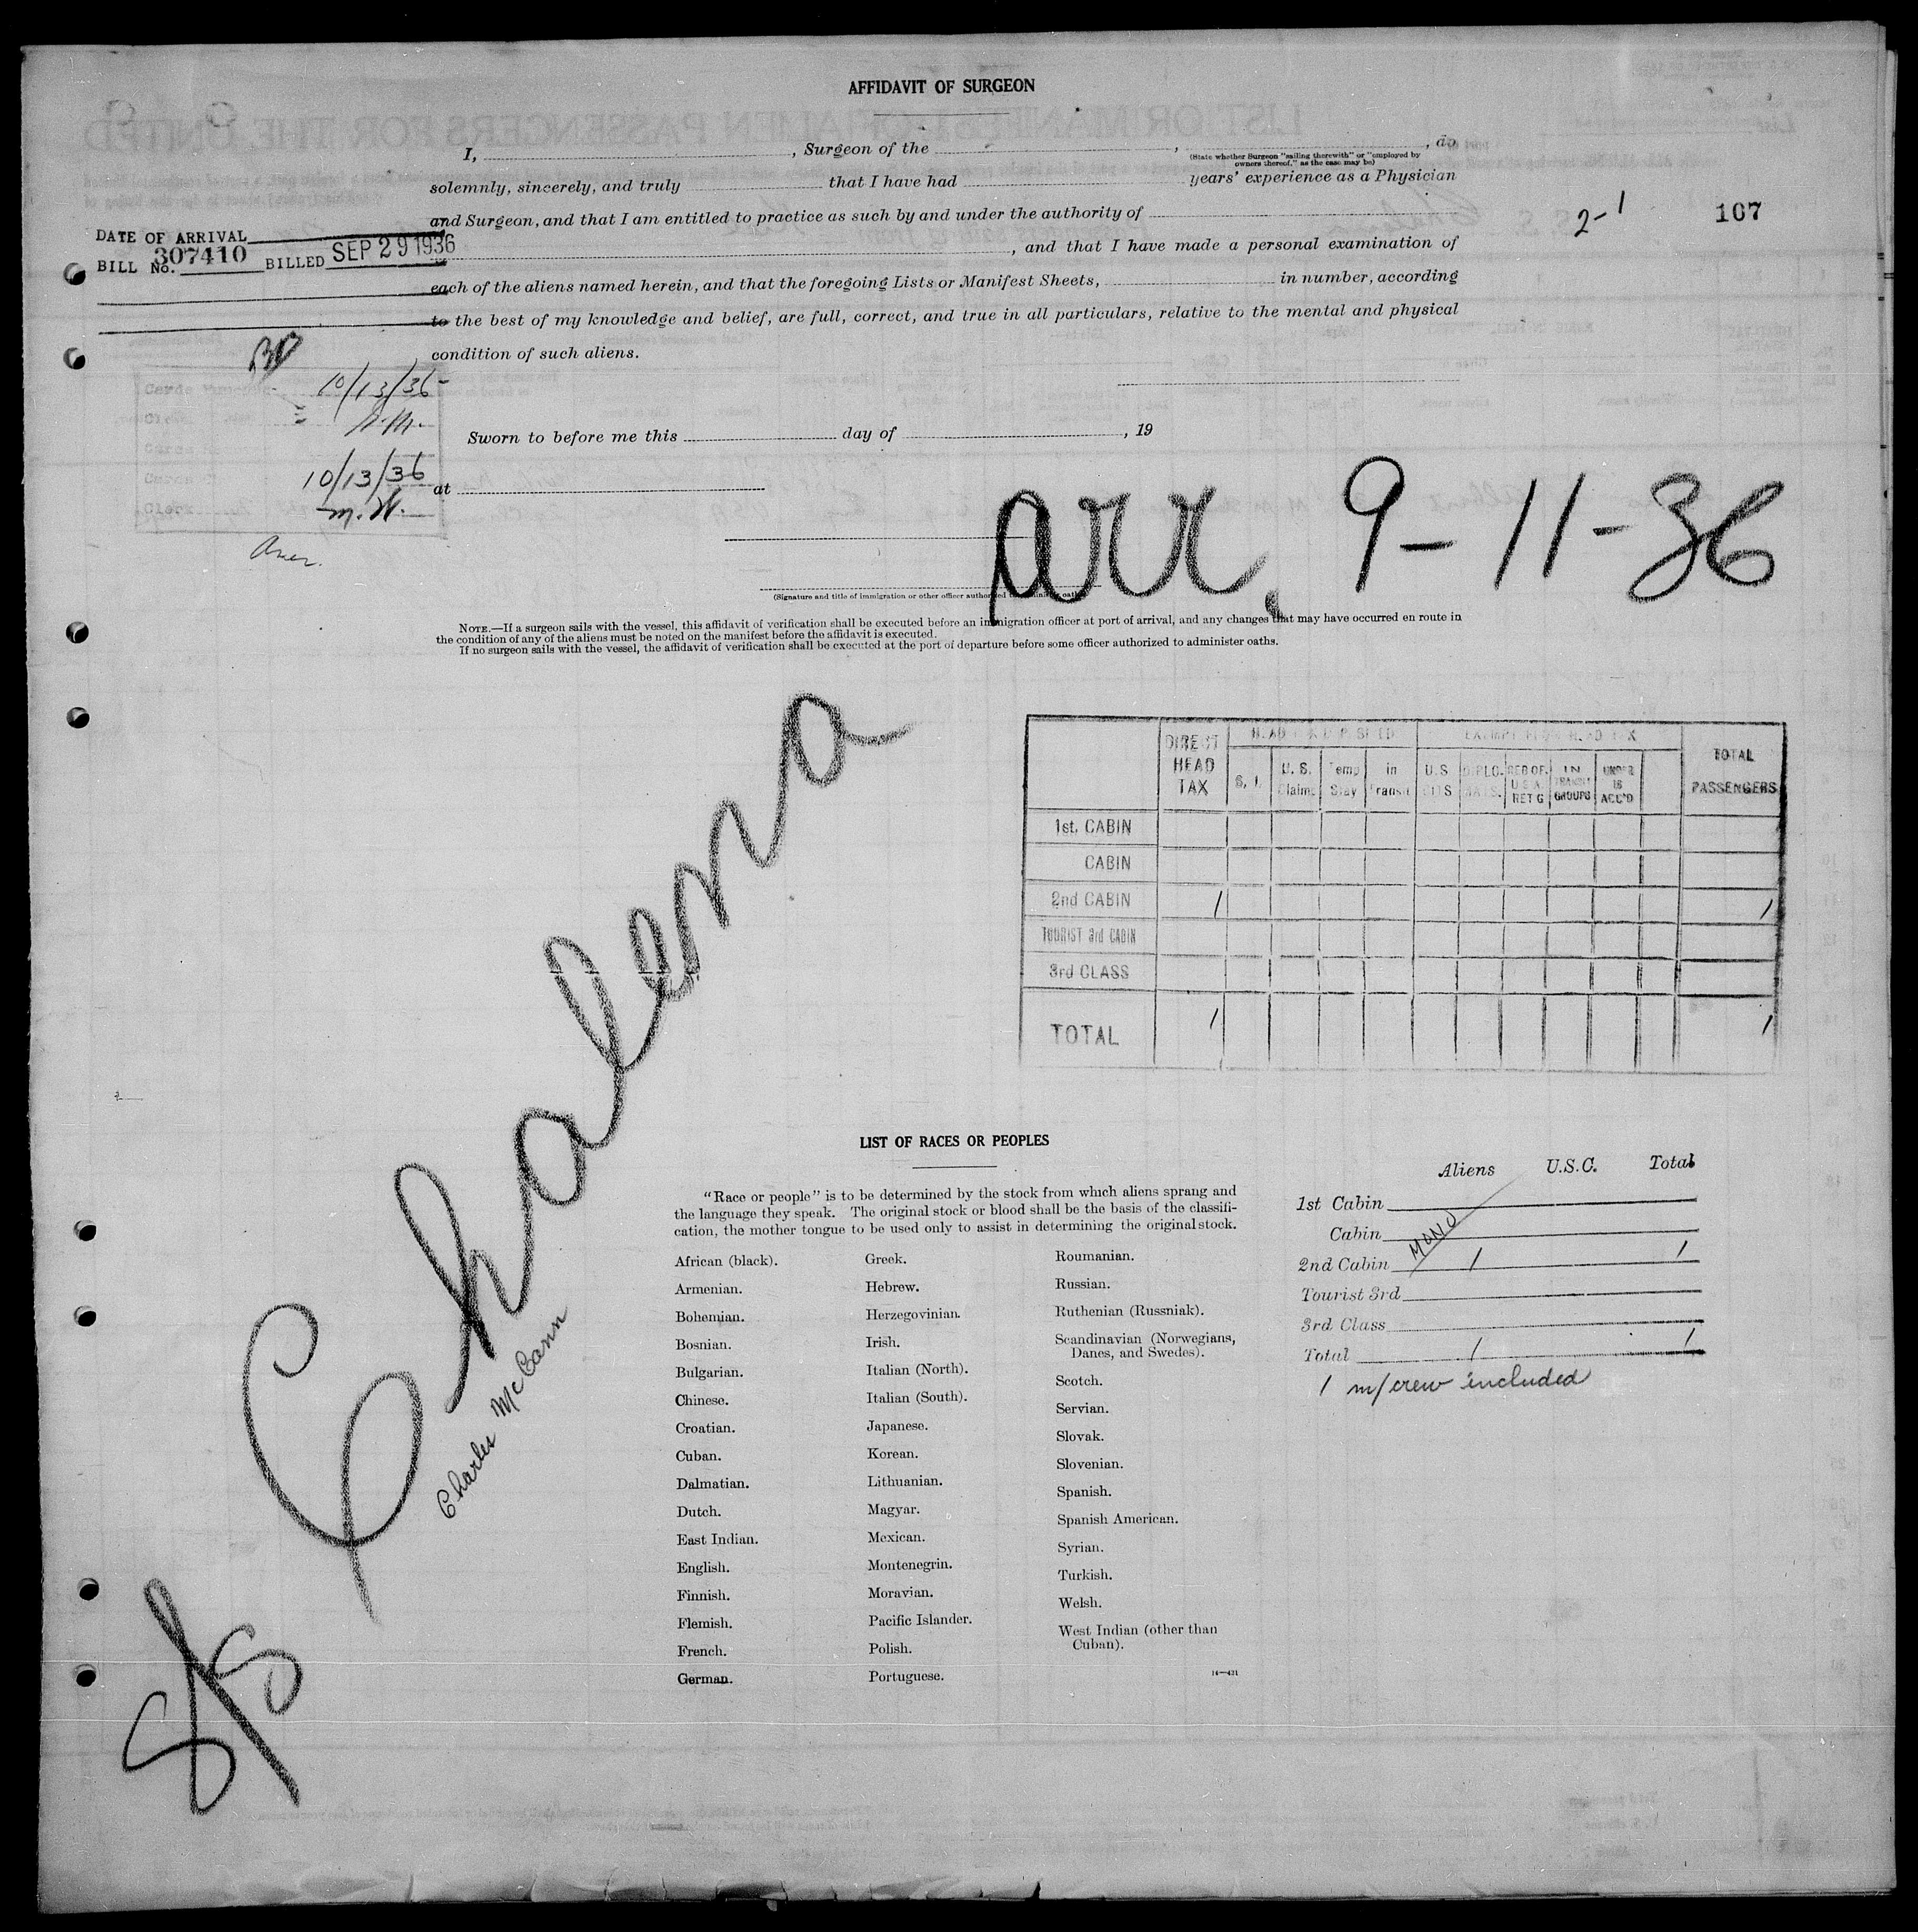 AFFIDAVIT OF SURGEON
I, , Surgeon of the , , do
(State whether Surgeon "sailing therewith" or "employed by
owners thereof," as the case may be)
solemnly, sincerely, and truly that I have had years' experience as a Physician
and Surgeon, and that I am entitled to practice as such by and under the authority of
2-1
107
, and that I have made a personal examination of
each of the aliens named herein, and that the foregoing Lists or Manifest Sheets, in number, according
to the best of my knowledge and belief, are full, correct, and true in all particulars, relative to the mental and physical
condition of such aliens.
DATE OF ARRIVAL
BILL No. 307410 BILLED SEP 29 1936
10/13/36
10/13/36
m.W.
Sworn to before me this day of , 19
at
arr. 9-11-36
(Signature and title of immigration or other officer authorized to administer oaths)
NOTE.—If a surgeon sails with the vessel, this affidavit of verification shall be executed before an immigration officer at port of arrival, and any changes that may have occurred en route in
the condition of any of the aliens must be noted on the manifest before the affidavit is executed.
If no surgeon sails with the vessel, the affidavit of verification shall be executed at the port of departure before some officer authorized to administer oaths.
S/S Chalena
Charles McCann
DIRECT HEAD TAX
S. I.
U. S. Claims
Temp Stay
in Transit
EXEMPT FROM HEAD TAX
U.S CITS
DIPLO-MATS.
RED OF. U.S.A. RET'G
IN TRANSIT GROUPS
UNDER 16 ACC'D
TOTAL PASSENGERS
1st. CABIN
CABIN
2nd CABIN 1 1
TOURIST 3rd CABIN
3rd CLASS
TOTAL 1 1
LIST OF RACES OR PEOPLES
"Race or people" is to be determined by the stock from which aliens sprang and
the language they speak. The original stock or blood shall be the basis of the classifi-
cation, the mother tongue to be used only to assist in determining the original stock.
African (black).
Armenian.
Bohemian.
Bosnian.
Bulgarian.
Chinese.
Croatian.
Cuban.
Dalmatian.
Dutch.
East Indian.
English.
Finnish.
Flemish.
French.
German.
Greek.
Hebrew.
Herzegovinian.
Irish.
Italian (North).
Italian (South).
Japanese.
Korean.
Lithuanian.
Magyar.
Mexican.
Montenegrin.
Moravian.
Pacific Islander.
Polish.
Portuguese.
Roumanian.
Russian.
Ruthenian (Russniak).
Scandinavian (Norwegians,
Danes, and Swedes).
Scotch.
Servian.
Slovak.
Slovenian.
Spanish.
Spanish American.
Syrian.
Turkish.
Welsh.
West Indian (other than
Cuban).
14—421
Aliens U.S.C. Total
1st Cabin
Cabin
2nd Cabin 1 1
Tourist 3rd
3rd Class
Total 1 1
1 m/crew included